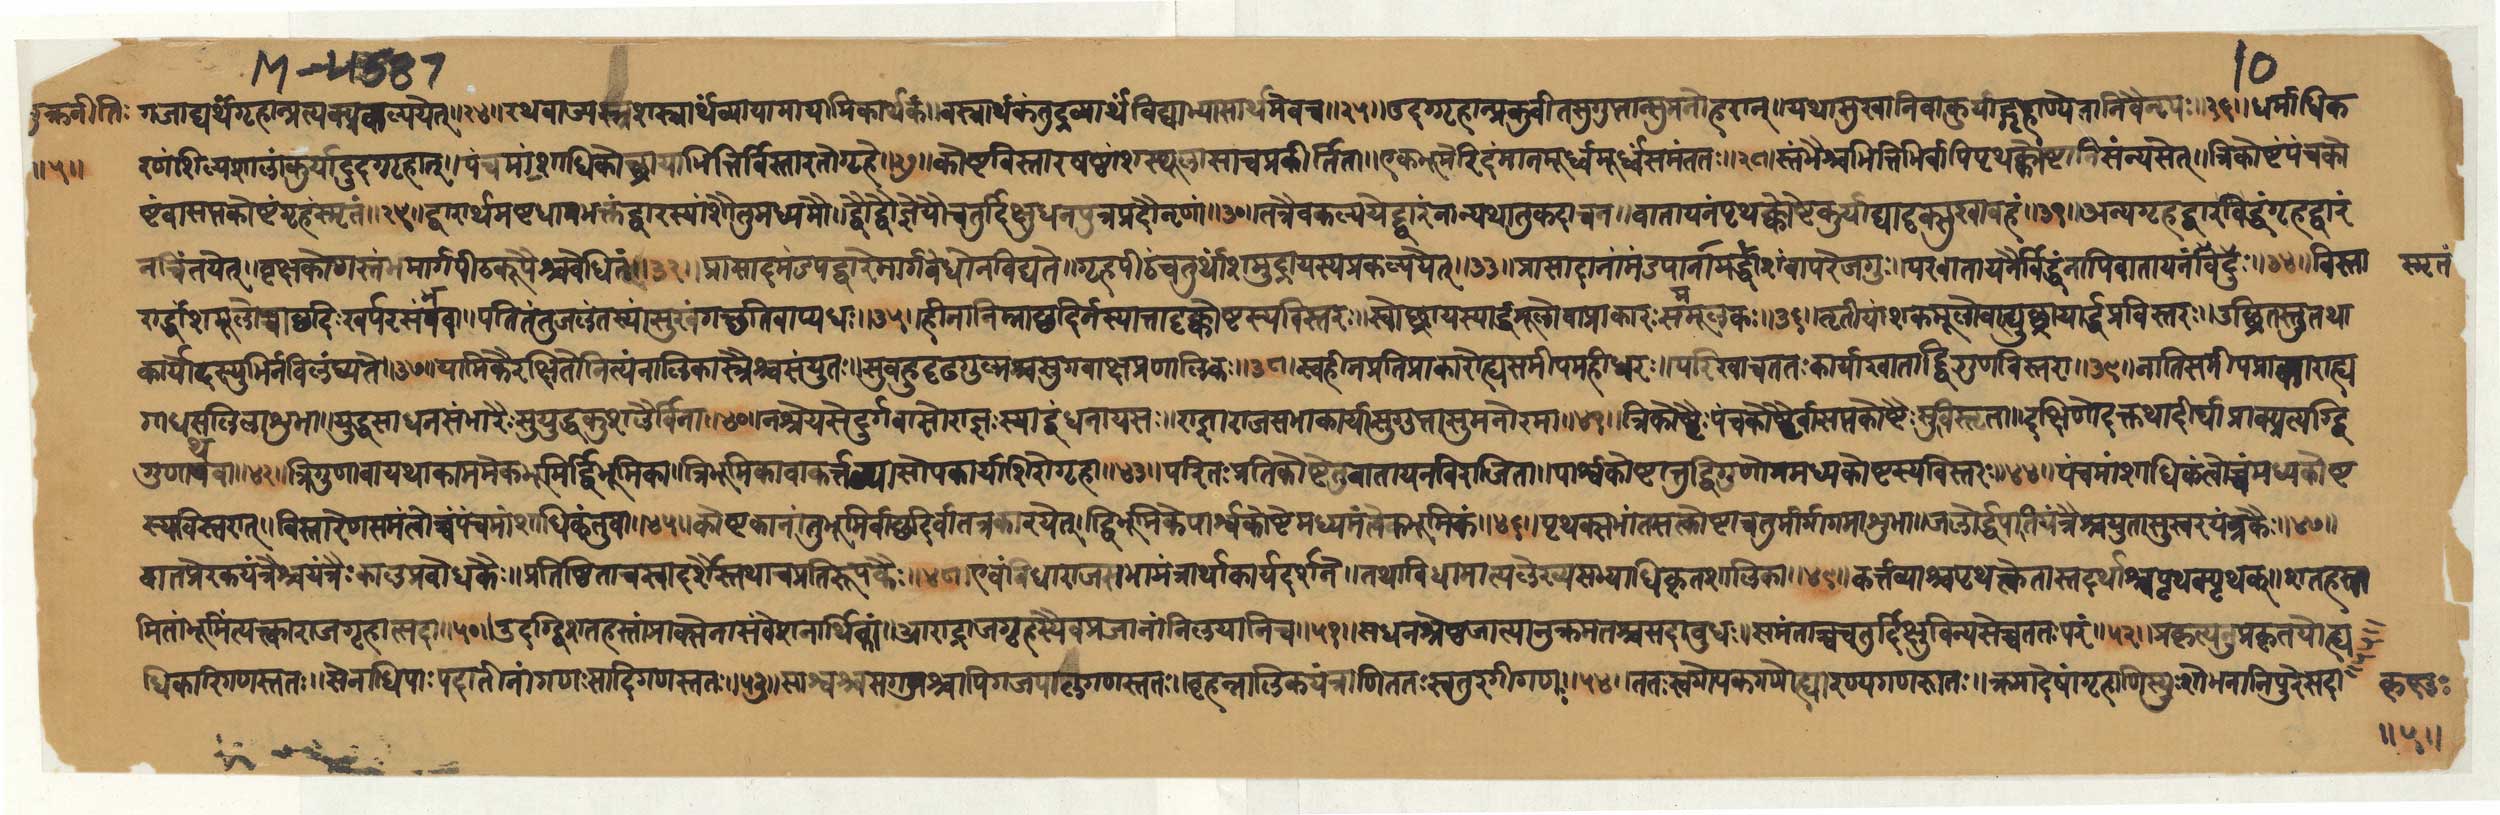 M-4587
10
शुक्रनीतिः
॥५॥
गजाद्यर्थंगृहान्प्रत्यक्प्राक्कल्पयेत्॥२४॥रथवाज्यस्त्रशस्त्रार्थंव्यायामायामिकार्थकं॥वस्त्रार्थकंतुद्रव्यार्थंविद्याभ्यासार्थमेवच॥२५॥उदग्गृहान्प्रकुर्वीतसुगुप्तान्सुमनोहरान्॥यथासुखानिवाकुर्याद्गृहाण्येतानिवैनृपः॥२६॥धर्माधिक
रणंशिल्पशालांकुर्यादुदग्गृहात्॥पंचमांशाधिकोच्छ्रायाभित्तिर्विस्तारतोगृहे॥२७॥कोष्टविस्तारषष्ठांशस्थूलासाचप्रकीर्त्तिता॥एकभूमेरिदंमानमूर्ध्वमूर्ध्वंसमंततः॥२८॥स्तंभैश्चभित्तिभिर्वापिपृथक्कोष्टानिसंन्यसेत्॥त्रिकोष्टंपंचको
ष्टंवासप्तकोष्टंगृहंस्मृतं॥२९॥द्वारार्थमष्टधाभक्तंद्वारस्यांशौतुमध्यमौ॥द्वौद्वौज्ञेयौचतुर्दिक्षुधनपुत्रप्रदौनृणां॥३०॥तत्रैवकल्पयेद्द्वारंनान्यथातुकदाचन॥वातायनंपृथक्कोष्टेकुर्याद्यादृक्सुखावहं॥३१॥अन्यगृहद्वारविद्धंगृहद्वारं
नचिंतयेत्॥वृक्षकोणस्तंभमार्गपीठकूपैश्चवेधितं॥३२॥प्रासादमंडपद्वारेमार्गवेधोनविद्यते॥गृहपीठंचतुर्थांशमुच्छ्रायस्यप्रकल्पयेत्॥३३॥प्रासादानांमंडपानामर्द्धांशंवापरेजगुः॥परवातायनैर्विद्धंनापिवातायनंविदुः॥३४॥विस्ता
स्मृतं
रार्द्धांशमूलोच्चाछदिःखर्परसंभवा॥पतितंतुजलंतस्यांसुखंगच्छतिवाप्यधः॥३५॥हीनानिम्नाछदिर्नस्यात्तादृक्कोष्टस्यविस्तरः॥स्वोच्छ्रायस्यार्द्धमूलोवाप्राकारःसममूलकः॥३६॥तृतीयांशकमूलोवाह्युच्छ्रायार्द्धप्रविस्तरः॥उच्छ्रितस्तुतथा
कार्योदस्युभिर्नविलंघ्यते॥३७॥यामिकैरक्षितोनित्यंनालिकास्त्रैश्चसंयुतः॥सुबहुदृढगुल्मश्चसुगवाक्षप्रणालिकः॥३८॥स्वहीनप्रतिप्राकारोह्यसमीपमहीधरः॥परिखाचततःकार्याखाताद्द्विगुणविस्तरा॥३९॥नातिसमीपप्राकाराह्य
गाधसलिलाशुभा॥युद्धसाधनसंभारैःसुयुद्धकुशलैर्विना॥४०॥नश्रेयसेदुर्गवासोराज्ञःस्याद्बंधनायसः॥राज्ञाराजसभाकार्यासुगुप्तासुमनोरमा॥४१॥त्रिकोष्टैःपंचकोष्टैर्वासप्तकोष्टैःसुविस्तृता॥दक्षिणोदक्तथादीर्घाप्राक्प्रत्यग्द्वि
गुणाथवा॥४२॥त्रिगुणावायथाकाममेकभूमिर्द्विभूमिका॥त्रिभूमिकावाकर्त्तव्यासोपकार्याशिरोगृहा॥४३॥परितःप्रतिकोष्टेतुवातायनविराजिता॥पार्श्वकोष्टात्तुद्विगुणोमध्यकोष्टस्यविस्तरः॥४४॥पंचमांशाधिकंत्वौच्चंमध्यकोष्ट
स्यविस्तरात्॥विस्तारेणसमंत्वौच्चंपंचमांशाधिकंतुवा॥४५॥कोष्टकानांतुभूमिर्वाछदिर्वातत्रकारयेत्॥द्विभूमिकेपार्श्वकोष्टेमध्यमंत्वेकभूमिकं॥४६॥पृथक्स्तंभांतसत्कोष्टाचतुर्मार्गागमाशुभा॥जलोर्द्धपातियंत्रैश्चयुतासुस्वरयंत्रकैः॥४७॥
वातप्रेरकयंत्रैश्चयंत्रैःकालप्रबोधकैः॥प्रतिष्ठिताचस्वादर्शैस्तथाचप्रतिरूपकैः॥४८॥एवंविधाराजसभामंत्रार्थाकार्यदर्शने॥तथाविधामात्यलेख्यसभ्याधिकृतशालिका॥४९॥कर्त्तव्याश्चपृथक्त्वेतास्तदर्थाश्चपृथक्पृथक्॥शतहस्त
मितांभूमिंत्यक्त्वाराजगृहात्सदा॥५०॥उदग्द्विशतहस्तांप्राक्सेनासंवेशनार्थिकां॥आराद्राजगृहस्यैवप्रजानांनिलयानिच॥५१॥सधनश्रेष्ठजात्यानुक्रमतश्चसदाबुधः॥समंताच्चचतुर्दिक्षुविन्यसेच्चततःपरं॥५२॥प्रकृत्यनुप्रकृतयोह्य
धिकारिगणस्ततः॥सेनाधिपाःपदातीनांगणःसादिगणस्ततः॥५३॥साश्वश्चसगजश्चापिगजपालगणस्ततः॥बृहन्नालिकयंत्राणिततःस्वतुरगीगणः॥५४॥ततःस्वगोपकगणोह्यारण्यगणकस्ततः॥क्रमादेषांगृहाणिस्युःशोभनानिपुरेसदा
॥५॥